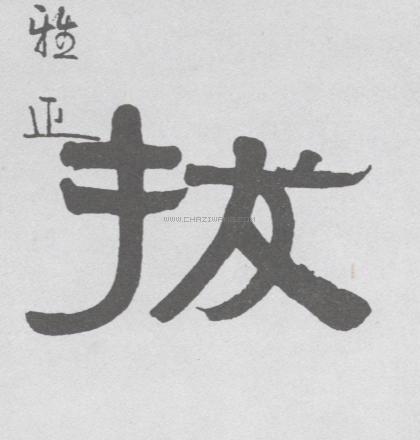 雅正
拔
WWW.CHAZIWANG.COM